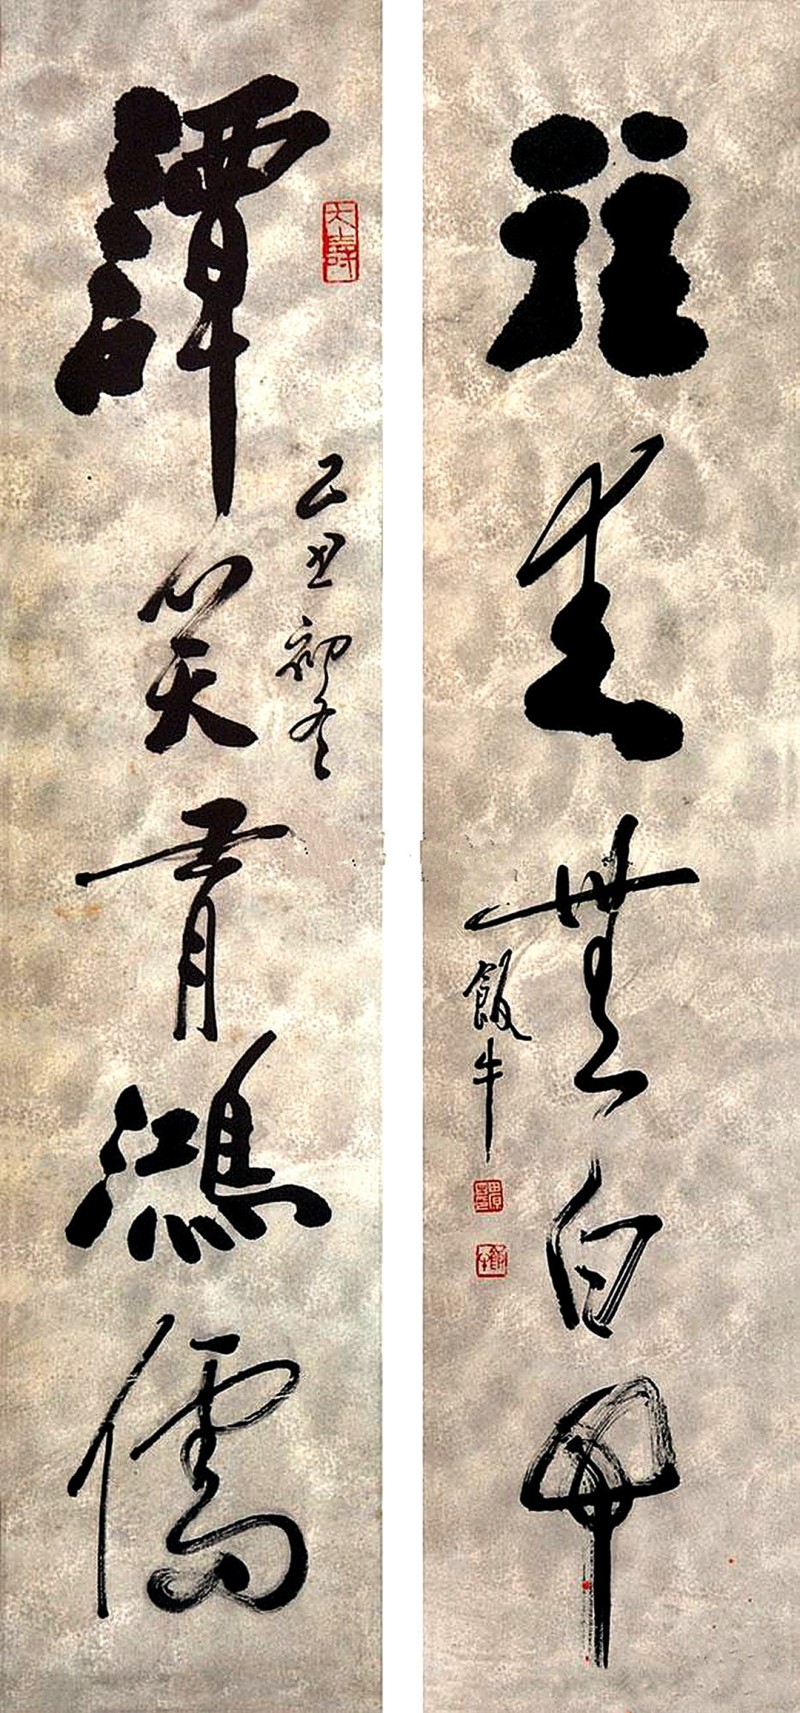 譚笑有鴻儒
己丑初冬
往來無白丁
飯牛